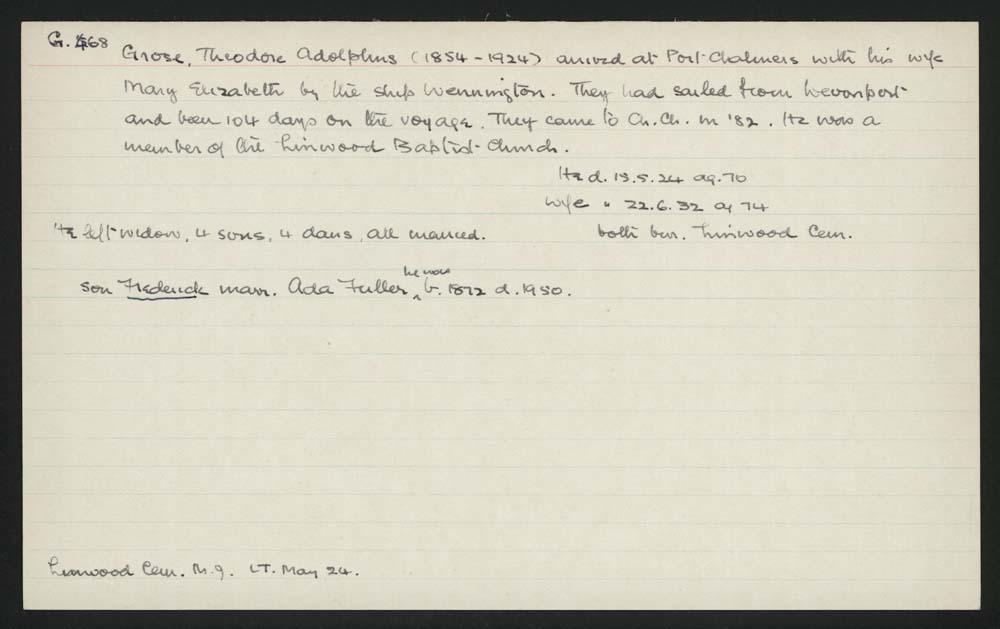 G.468
Grose, Theodore Adolphus (1854-1924) arrived at Port Chalmers with his wife
Mary Elizabeth by the ship Wennington. They had sailed from Devonport
and been 104 days on the voyage. They came to Ch.Ch. in '82. He was a
member of the Linwood Baptist Church.
He d. 13.5.24 ag. 70
wife " 22.6.32 ag 74
He left widow, 4 sons, 4 daus, all married.
both bur. Linwood Cem.
he was
son Frederick marr. Ada Fuller, b. 1872 d. 1950.
Linwood Cem. M.g. LT. May 24.